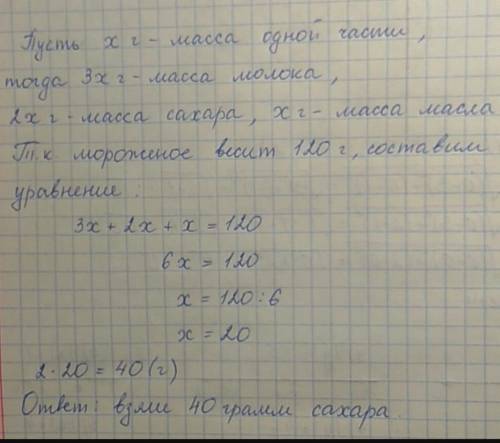 Пусть x г - масса одной части,
тогда 3x г - масса молока,
2x г - масса сахара, x г - масса масла
Т.к мороженое весит 120 г, составим
уравнение:
3x + 2x + x = 120
6x = 120
x = 120 : 6
x = 20
2 · 20 = 40 (г)
Ответ: взяли 40 грамм сахара.